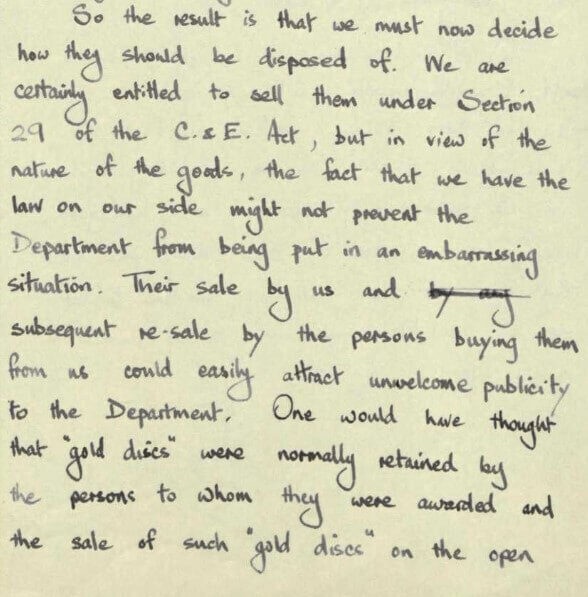 So the result is that we must now decide
how they should be disposed of. We are
certainly entitled to sell them under Section
29 of the C. & E. Act, but in view of the
nature of the goods, the fact that we have the
law on our side might not prevent the
Department from being put in an embarrassing
situation. Their sale by us and by any
subsequent re-sale by the persons buying them
from us could easily attract unwelcome publicity
to the Department. One would have thought
that "gold discs" were normally retained by
the persons to whom they were awarded and
the sale of such "gold discs" on the open